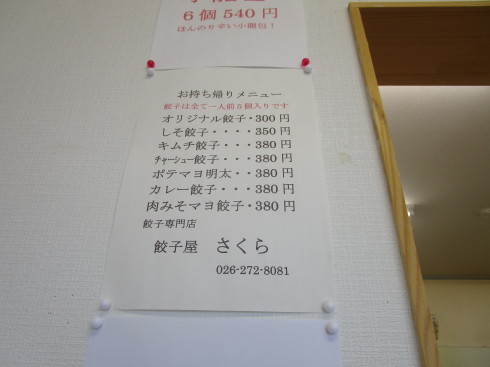 6個540円
ほんのり辛い小籠包！
お持ち帰りメニュー
餃子は全て一人前5個入りです
オリジナル餃子・300円
しそ餃子・・・・350円
キムチ餃子・・・380円
チャーシュー餃子・・・380円
ポテマヨ明太・・380円
カレー餃子・・・380円
肉みそマヨ餃子・380円
餃子専門店
餃子屋 さくら
026-272-8081